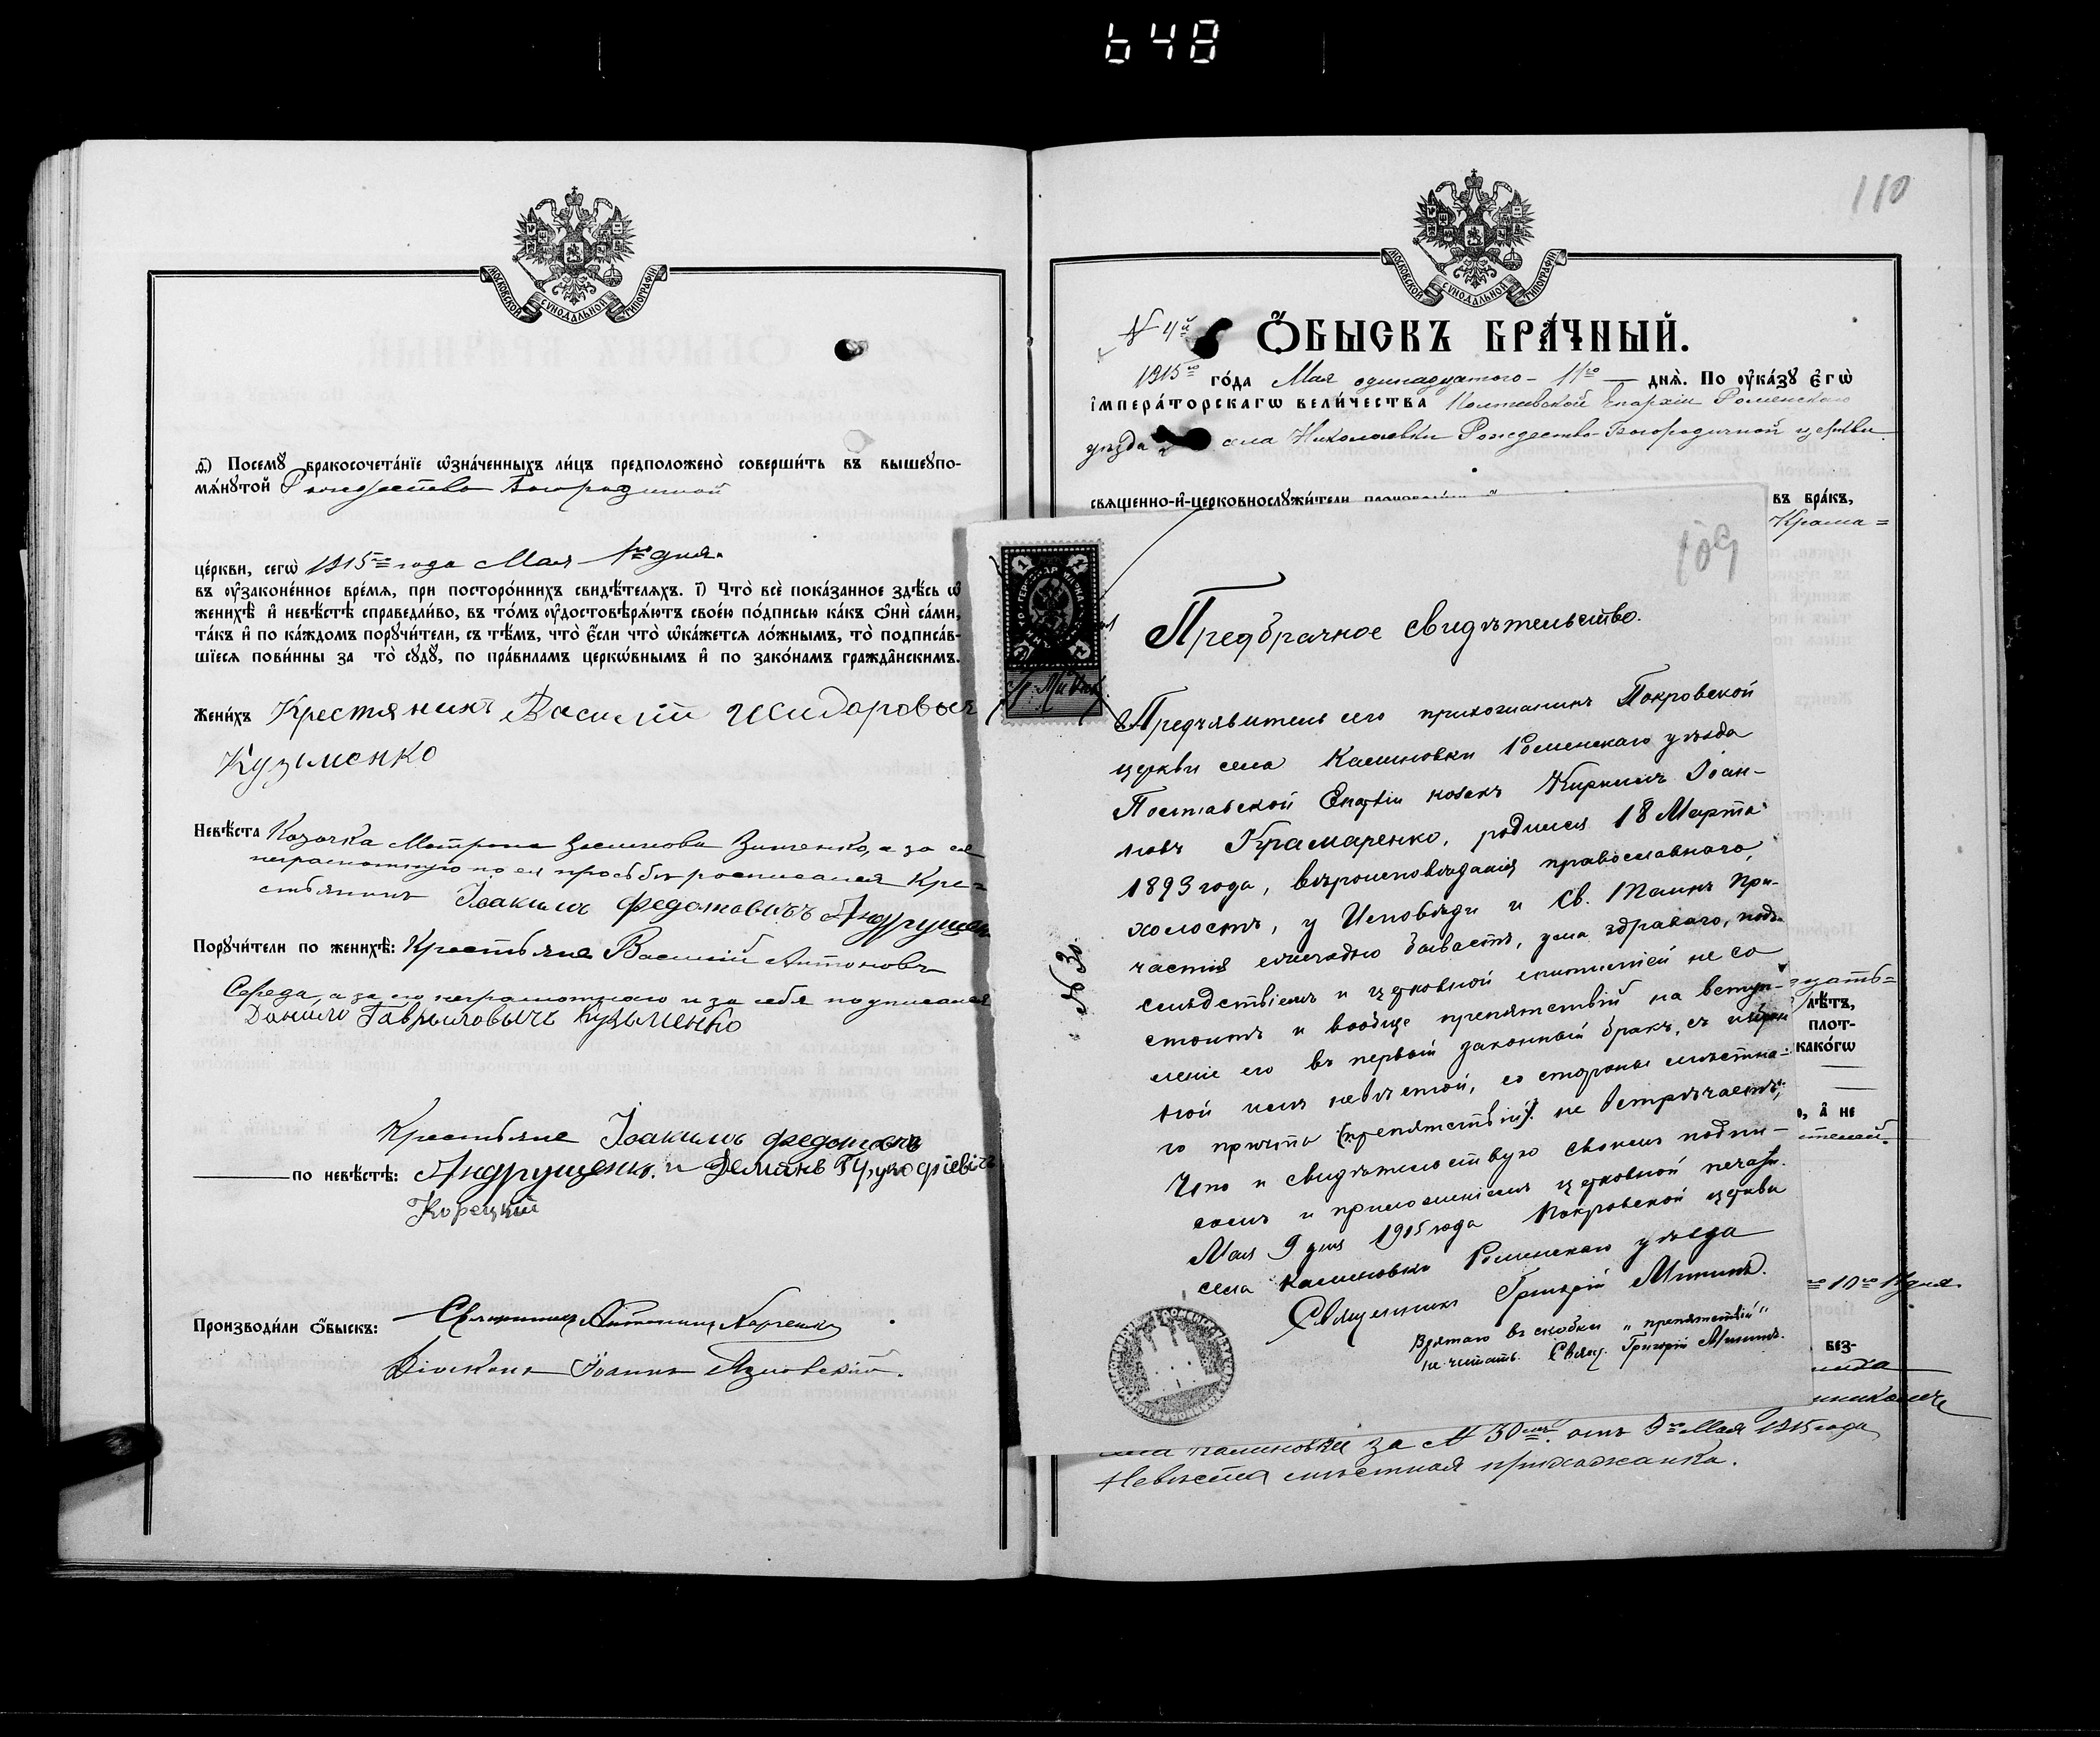 648
МОСКОВСКОЙ СУНОДАЛЬНОЙ ТИПОГРАФІИ
Ѳ҃) Посемꙋ̀ бракосочета́нїе ѡ҆зна́ченныхъ ли́цъ предположено̀ соверши́ть въ вышеꙋпо-
мѧ́нꙋтой Рождество Богородичной
це́ркви, сегѡ̀ 1915го года Мая 1го дня.
въ ᲂу҆законе́нное вре́мѧ, при посторо́ннихъ свидѣ́телѧхъ. і҃) Что̀ всѐ пока́занное здѣ́сь ѡ҆
женихѣ̀ и҆ невѣ́стѣ справедли́во, въ то́мъ ᲂу҆достовѣрѧ́ютъ свое́ю по́дписью ка́къ ѻ҆нѝ са́ми,
та́къ и҆ по ка́ждомъ порꙋчи́тели, съ тѣ́мъ, что̀ є҆́сли что̀ ѡ҆ка́жетсѧ ло́жнымъ, то̀ подписа́в-
шїесѧ пови́нны за то̀ сꙋдꙋ̀, по пра́виламъ церкѡ́внымъ и҆ по зако́намъ гражда̑нскимъ.
Жени́хъ Крестянинъ Василій Исидоровыч
Кузьменко
Невѣ́ста Козачка Матрона Зинченко, а за ея
неграмотную по ея просьбѣ росписался Кре-
стьянинъ Іоакимъ Федотовичъ Андрущен
Порꙋчи́тели по женихѣ̀: Крестьяне Василій Антоновъ
Середа, а за его неграмотнаго и за себя подписался
Данило Гаврыловычъ Кузьменко
Крестьяне Іоакимъ Федотовъ
по невѣ́стѣ: Андрущенко и Демянъ
Корецкій
Производи́ли ѻ҆́быскъ: Священникъ
Діаконъ Іоаннъ
110
МОСКОВСКОЙ СУНОДАЛЬНОЙ ТИПОГРАФІИ
N 4й
Ѻ҆́БЫСКЪ БРА́ЧНЫЙ.
1915го го́да Мая одинадцатого - 11го — днѧ̀. По ᲂу҆ка́зꙋ Є҆гѡ̀
І҆мпера́торскагѡ вели́чества Полтавской Епархіи Роменскаго
уѣзда села Николаевки Рождество-Богородичной церкви
свѧще́нно-и҆-церковнослꙋжи́тели
въ бра́къ,
Крама=
109
Предбрачное свидѣтельство.
Предъявитель сего прихожанинъ Покровской
церкви села Калиновки Роменскаго уѣзда
Полтавской Епархіи козакъ Кириллъ Іоан-
новъ Крамаренко, родился 18 Марта
1893 года, вѣроисповѣданія православнаго,
холостъ, у Исповѣди и Св. Таинъ При-
частія ежегодно бываетъ, ума здраваго, подъ
слѣдствіемъ и церковной епитиміей не со
стоитъ и вообще препятствій на вступ-
леніе его въ первый законный бракъ, съ избран
ной имъ невѣстой, со стороны мѣстна-
го причта (препятствій) не встрѣчается,
Что и свидѣтельствую своимъ подпи-
сомъ и приложеніемъ церковной печати.
Мая 9 дня 1915 года Покровской церкви
села Калиновки Роменскаго уѣзда
Священникъ Григорій
Взятаго въ скобки „препятствій"
не читать. Свящ. Григорій
№ 30
лѣ́тъ,
плот-
како́гѡ
а҆ не
10го дня.
без-
села Калиновки за № 30мъ отъ 9го Мая 1915 года
Невѣста мѣстная прихожанка.